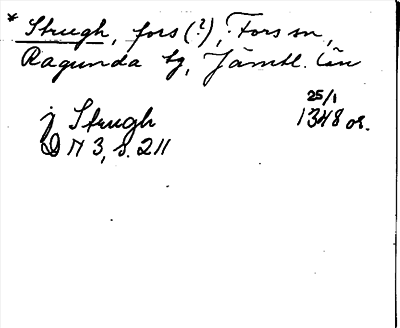 * Strugh, fors (?), Fors sn,
Ragunda tg, Jämtl. län
25/1
j Strugh 1348 or.
N 3, s. 211